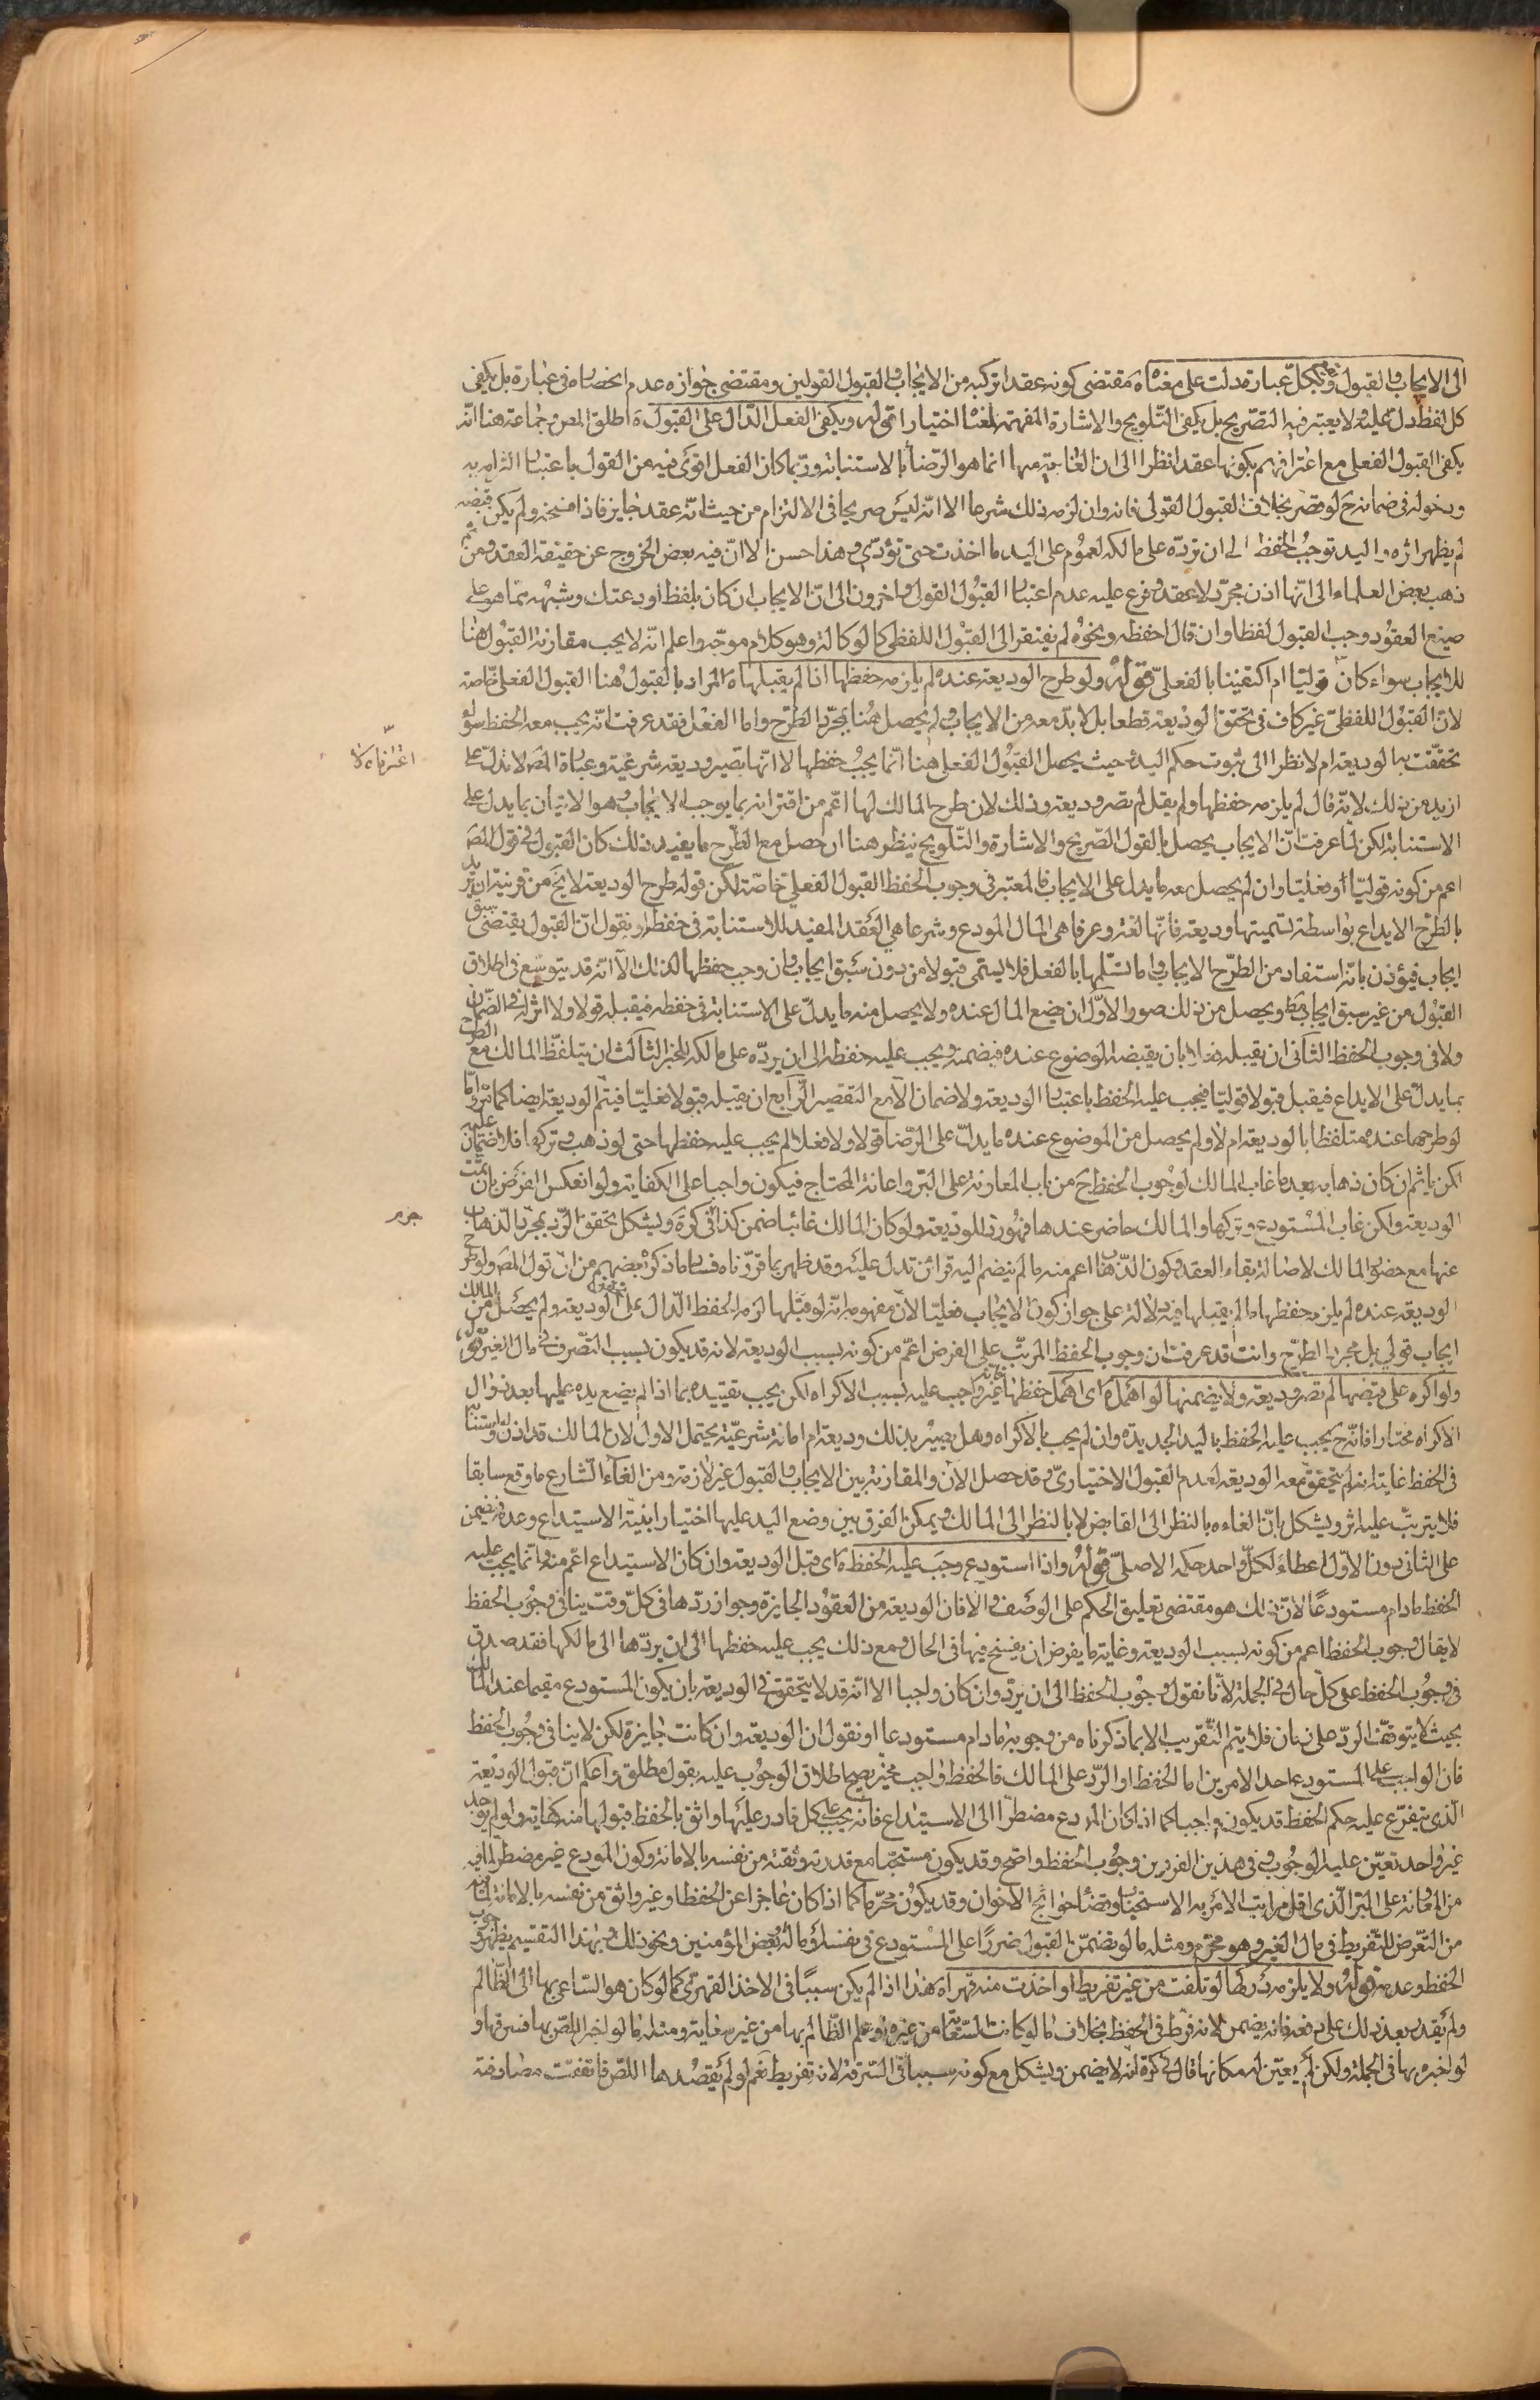 الى الايجاب والقبول ويقع بكل عبارة دلت على معناه ه مقتضى كونه عقدا تركبه من الايجاب والقبول القولين ومقتضى جوازه عدم انحصاره فى عبارة بل يكفى
كل لفظ دل عليه ولا يعتبر فيه التصريح بل يكفى التلويح والاشارة المفهمة لمعناها اختيارا قوله ويكفى الفعل الدال على القبول ه اطلق المص وجماعة هنا انه
يكفى القبول الفعلى مع اعترافهم بكونها عقدا نظرا الى ان الغاية منها انما هو الرضا بالاستنابة وربما كان الفعل اقوى فيه من القول باعتبار التزامه به
ودخوله فى ضمانه ح لو قصر بخلاف القبول القولى فانه وان لزمه ذلك شرعا الا انه ليس صريحا فى الالتزام من حيث انه عقد جايز فاذا فسخه ولم يكن قبضه
لم يظهر اثره واليد توجب الحفظ الى ان ترده على مالكه لعموم على اليد ما اخذت حتى تؤدى وهذا حسن الا ان فيه بعض الخروج عن حقيقة العقد ومن ثم
ذهب بعض العلماء الى انها اذن مجرد لا عقد وفرع عليه عدم اعتبار القبول القولى واخرون الى ان الايجاب ان كان بلفظ اودعتك وشبهه مما هو على
صيغ العقود وجب القبول لفظا وان قال احفظه ونحوه لم يفتقر الى القبول اللفظى كالوكالة وهو كلام موجه واعلم انه لا يجب مقارنة القبول هنا
للايجاب سواء كان قوليا ام اكتفينا بالفعلى قوله ولو طرح الوديعة عنده لم يلزمه حفظها اذا لم يقبلها ه المراد بالقبول هنا القبول الفعلى خاصة
لان القبول اللفظى غير كاف فى تحقق الوديعة قطعا بل لابد معه من الايجاب ولم يحصل هنا بمجرد الطرح واما الفعل فقد عرفت انه يجب معه الحفظ سواء
تحققت بها الوديعة ام لا نظرا الى ثبوت حكم اليد وحيث يحصل القبول الفعلى هنا انما يجب حفظها لا انها تصير وديعة شرعية وعبارة المص لا تدل على
ازيد من ذلك لانه قال لم يلزمه حفظها ولم يقل لم تصر وديعة وذلك لان طرح المالك لها اعم من اقترانه بما يوجب الايجاب وهو الاتيان بما يدل على
الاستنابة لكن لما عرفت ان الايجاب يحصل بالقول الصريح والاشارة والتلويح ينظر هنا ان حصل مع الطرح ما يفيد ذلك كان القبول فى قول المص
اعم من كونه قوليا او فعليا وان لم يحصل معه ما يدل على الايجاب فالمعتبر فى وجوب الحفظ القبول الفعلى خاصة لكن قوله طرح الوديعة لا يخ من قرينة ان يريد
بالطرح الايداع بواسطة تسميتها وديعة فانها لغة وعرفا هى المال المودع وشرعا هى العقد المفيد للاستنابة فى حفظه او نقول ان القبول يقتضى سبق
ايجاب فيؤذن بانه استفاد من الطرح الايجاب واما تسلمها بالفعل فلا يسمى قبولا من دون سبق ايجاب وان وجب حفظها لذلك الا انه قد يتوسع فى اطلاق
القبول من غير سبق ايجاب ويحصل من ذلك صور الاول ان يضع المال عنده ولا يحصل منه ما يدل على الاستنابة فى حفظه فيقبله قولا ولا اثر له فى الضمان
ولا فى وجوب الحفظ الثانى ان يقبله فعلا بان يقبضه الموضوع عنده فيضمنه ويجب عليه حفظه الى ان يرده على مالكه للخبر الثالث ان يتلفظ المالك مع الطرح
بما يدل على الايداع فيقبل قبولا قوليا فيجب عليه الحفظ باعتبار الوديعة ولا ضمان الا مع التقصير الرابع ان يقبله قبولا فعليا فيتم الوديعة ايضا كما مر واما
لو طرحها عنده متلفظا بالوديعة ام لا ولم يحصل من الموضوع عنده ما يدل على الرضا قولا ولا فعلا لم يجب عليه حفظها حتى لو ذهب وتركها فلا ضمان عليه
لكن ياثم ان كان ذهابه بعد ما غاب المالك لوجوب الحفظ ح من باب المعاونة على البر واعانة المحتاج فيكون واجبا على الكفاية ولو انعكس الفرض بان تمت
الوديعة ولكن غاب المستودع وتركها والمالك حاضر عندها فهو رد للوديعة ولو كان المالك غائبا ضمن كذا فى كره ويشكل تحقق الرد بمجرد الذهاب
عنها مع حضور المالك لاصالة بقاء العقد وكون الذهاب اعم منه ما لم ينضم اليه قرائن تدل عليه وقد ظهر بما قررناه فساد ما ذكره بعضهم من ان قول المص ولو طرح
الوديعة عنده لم يلزمه حفظها ما لم يقبلها فيه دلالة على جواز كون الايجاب فعليا لان مفهومه انه لو قبلها لزمه الحفظ الدال على تحقق الوديعة ولم يحصل من المالك
ايجاب قولى بل مجرد الطرح وانت قد عرفت ان وجوب الحفظ المرتب على الفرض اعم من كونه بسبب الوديعة لانه قد يكون بسبب التصرف فى مال الغير قوله
ولو اكره على قبضها لم تصر وديعة ولا يضمنها لو اهمل ه اى اهمل حفظها فانه غير واجب عليه بسبب الاكراه لكن يجب تقييده بما اذا لم يضع يده عليها بعد زوال
الاكراه مختارا فانه ح يجب عليه الحفظ باليد الجديدة وان لم يجب بالاكراه وهل يصير بذلك وديعة ام امانة شرعية يحتمل الاول لان المالك قد اذن له واستنابه
فى الحفظ غايته انه لم يتحقق معه الوديعة لعدم القبول الاختيارى وقد حصل الان والمقارنة بين الايجاب والقبول غير لازمة ومن الغاء الشارع ما وقع سابقا
فلا يترتب عليه اثر ويشكل بان الغاءه بالنظر الى القابض لا بالنظر الى المالك ويمكن الفرق بين وضع اليد عليها اختيارا بنية الاستيداع وعدمه فيضمن
على الثانى دون الاول اعطاء لكل واحد حكمه الاصلى قوله واذا استودع وجب عليه الحفظ ه اى قبل الوديعة وان كان الاستيداع اعم منه وانما يجب عليه
الحفظ ما دام مستودعا لان ذلك هو مقتضى تعليق الحكم على الوصف والا فان الوديعة من العقود الجايزة وجواز ردها فى كل وقت ينافى وجوب الحفظ
لا يقال وجوب الحفظ اعم من كونه بسبب الوديعة وغاية ما يفرض ان يفسخ فيها فى الحال ومع ذلك يجب عليه حفظها الى ان يردها الى مالكها فقد صدق
وجوب الحفظ على كل حال فى الجملة لانا نقول وجوب الحفظ الى ان يرد وان كان واجبا الا انه قد لا يتحقق فى الوديعة بان يكون المستودع مقيما عند المالك
بحيث لا يتوقف الرد على زمان فلا يتم التقريب الا بما ذكرناه من وجوبه ما دام مستودعا او نقول ان الوديعة وان كانت جايزة لكن لا ينافى وجوب الحفظ
فان الواجب على المستودع احد الامرين اما الحفظ او الرد على المالك فالحفظ واجب مخير يصح اطلاق الوجوب عليه بقول مطلق واعلم ان قبول الوديعة
الذى يتفرع عليه حكم الحفظ قد يكون واجبا كما اذا كان المودع مضطرا الى الاستيداع فانه يجب على كل قادر عليها واثق بالحفظ قبولها منه كفاية ولو لم يوجد
غير واحد تعين عليه الوجوب وفى هذين الفردين وجوب الحفظ واضح وقد يكون مستحبا مع قدرته وثقته من نفسه بالامانة وكون المودع غير مضطر لما فيه
من المعاونة على البر الذى اقل مراتب الامر به الاستحباب وقضاء حوائج الاخوان وقد يكون محرما كما اذا كان عاجزا عن الحفظ او غير واثق من نفسه بالامانة لما فيه
من التعرض للتفريط فى مال الغير وهو محرم ومثله ما لو تضمن القبول ضررا على المستودع فى نفسه او ماله او بعض المؤمنين ونحو ذلك وبهذا التقسيم يظهر وجوب
الحفظ وعدمه قوله ولا يلزمه دركها لو تلفت من غير تفريط او اخذت منه قهرا ه هذا اذا لم يكن سببا فى الاخذ القهرى كما لو كان هو الساعى بها الى الظالم
ولم يقدر بعد ذلك على دفعه فانه يضمن لانه فرط فى الحفظ بخلاف ما لو كانت السعاية من غيره او علم الظالم بها من غير سعاية ومثله ما لو اخبر اللص بها فسرقها او
لو اخبره بها فى الجملة ولكن لم يعين له مكانها قال فى كره انه لا يضمن ويشكل مع كونه سببا فى السرقة لانه تفريط نعم لو لم يقصدها اللص فاتفقت مصادفة
جزم